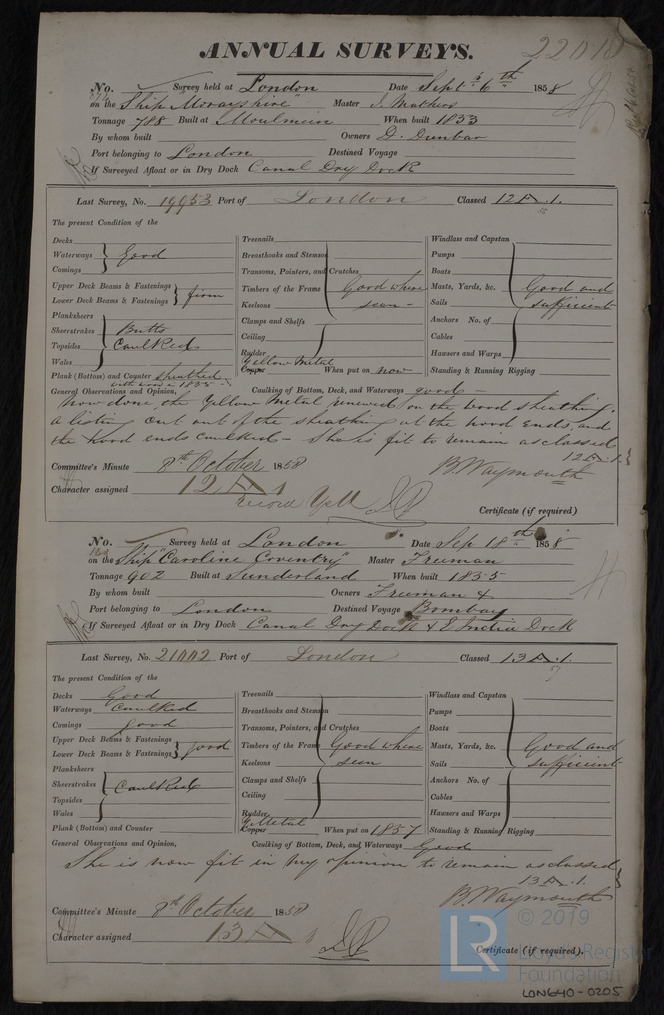 22010
ANNUAL SURVEYS.
No. Survey held at London Date Septr. 6th 1858
on the Ship "Morayshire" Master J. Mathers
Tonnage 788 Built at Moulmein When built 1833
By whom built Owners D. Dunbar
Port belonging to London Destined Voyage
If Surveyed Afloat or in Dry Dock Canal Dry Dock
Last Survey, No. 19953 Port of London Classed 12 A.1.
The present Condition of the
Decks
Waterways
Comings
good
Upper Deck Beams & Fastenings
Lower Deck Beams & Fastenings
firm
Planksheers
Sheerstrakes
Topsides
Wales
Butts
Caulked
Plank (Bottom) and Counter sheathed
with wood in 1855
Treenails
Breasthooks and Stemson
Transoms, Pointers, and Crutches
Timbers of the Frame
Keelsons
Good where
seen -
Clamps and Shelfs
Ceiling
Rudder
Yellow Metal
Copper When put on now
Windlass and Capstan
Pumps
Boats
Masts, Yards, &c.
Sails
Anchors No. of
Cables
Hawsers and Warps
Good and
sufficient
Standing & Running Rigging
General Observations and Opinion, Caulking of Bottom, Deck, and Waterways good -
Now done the Yellow Metal renewed on the wood sheathing.
a listing cut out of the sheathing at the hood ends, and
the hood ends caulked - She is fit to remain as classed
12 A.1.
Committee's Minute 8th October 1858
B. Waymouth
Character assigned 12 A 1
record
Certificate (if required)
No. Survey held at London Date Sep 18th 1858
on the Ship "Caroline Coventry" Master Freeman
Tonnage 902 Built at Sunderland When built 1855
By whom built Owners Freeman &
Port belonging to London Destined Voyage Bombay
If Surveyed Afloat or in Dry Dock Canal Dry Dock & E India Dock
Last Survey, No. 21002 Port of London Classed 13 A.1.
57
The present Condition of the
Decks Good
Waterways Caulked
Comings good
Upper Deck Beams & Fastenings
Lower Deck Beams & Fastenings
good
Planksheers
Sheerstrakes
Topsides
Wales
Caulked
Plank (Bottom) and Counter
Treenails
Breasthooks and Stemson
Transoms, Pointers, and Crutches
Timbers of the Frame
Keelsons
Good where
seen
Clamps and Shelfs
Ceiling
Rudder
Y. Metal
Copper When put on 1857
Windlass and Capstan
Pumps
Boats
Masts, Yards, &c.
Sails
Anchors No. of
Cables
Hawsers and Warps
Good and
sufficient
Standing & Running Rigging
General Observations and Opinion, Caulking of Bottom, Deck, and Waterways Good
She is now fit in my opinion to remain as classed
13 A.1.
B. Waymouth
Committee's Minute 8th October 1858
Character assigned 13 A 1
Certificate (if required).
© 2019
LR
Lloyd's Register
Foundation
LON640-0205